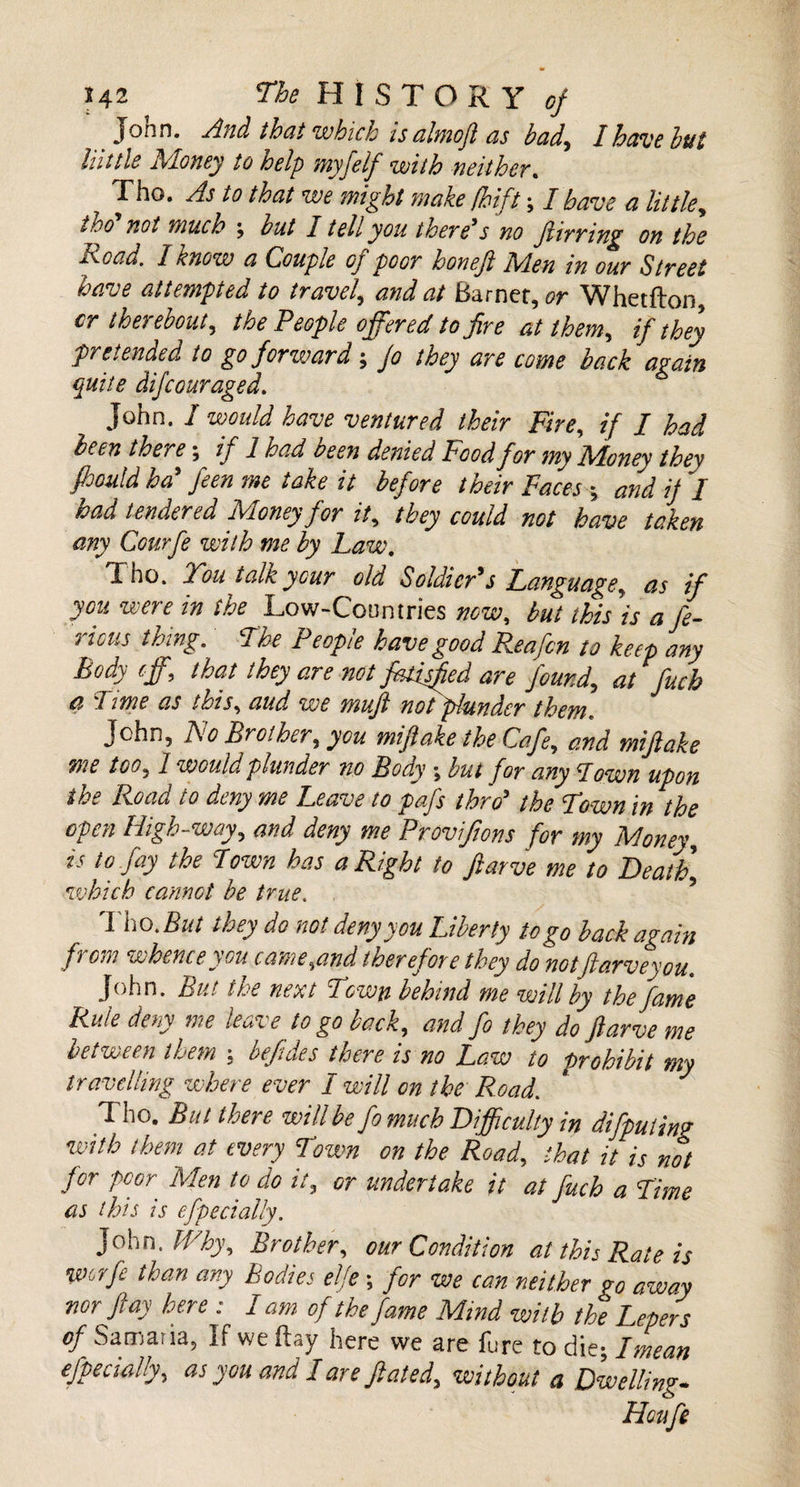 142 The HISTORY of
John. And that which is almoſt as bad, I have but
liittle Money to help myſelf with neither.
Tho. As to that we might make ſhift; I have a little,
tho' not much; but I tell you there's no ſtirring on the
Road. I know a Couple of poor honeſt Men in our Street
have attempted to travel, and at Barnet, or Whetſton,
or thereb­out, the People offered to fire at them, if they
pretended to go forward; ſo they are come back again
quite diſcouraged.
John. I would have ventured their Fire, if I had
been there; if I had been denied Food for my Money they
ſhould ha' ſeen me take it before their Faces; and if I
had tendered Money for it, they could not have taken
any Courſe with me by Law.
Tho. You talk your old Soldier's Language, as if
you were in the Low-Countries now, but this is a ſe-
rious thing. The People have good Reaſon to keep any
Body off, that they are not ſatisfied are ſound, at ſuch
a Time as this, aud we muſt not plunder them.
John, No Brother, you miſtake the Caſe, and miſtake
me too, I would plunder no Body; but for any Town upon
the Road to deny me Leave to paſs thro' the Town in the
open High-way, and deny me Proviſions for my Money,
is to ſay the Town has a Right to ſtarve me to Death,
which cannot be true.
Tho. But they do not deny you Liberty to go back again
from whence you came, and therefore they do not ſtarve you.
John. But the next Town behind me will by the ſame
Rule deny me leave to go back, and ſo they do ſtarve me
between them; beſides there is no Law to prohibit my
travelling where ever I will on the Road.
Tho. But there will be ſo much Difficulty in diſputing
with them at every Town on the Road, that it is not
for poor Men to do it, or undertake it at ſuch a Time
as this is eſpecially.
John. Why, Brother, our Condition at this Rate is
worſe than any Bodies elſe; for we can neither go away
nor ſtay here: I am of the ſame Mind with the Lepers
of Samaria, If we ſtay here we are ſure to die; I mean
eſpecially, as you and I are ſtated, without a Dwelling-
Houſe